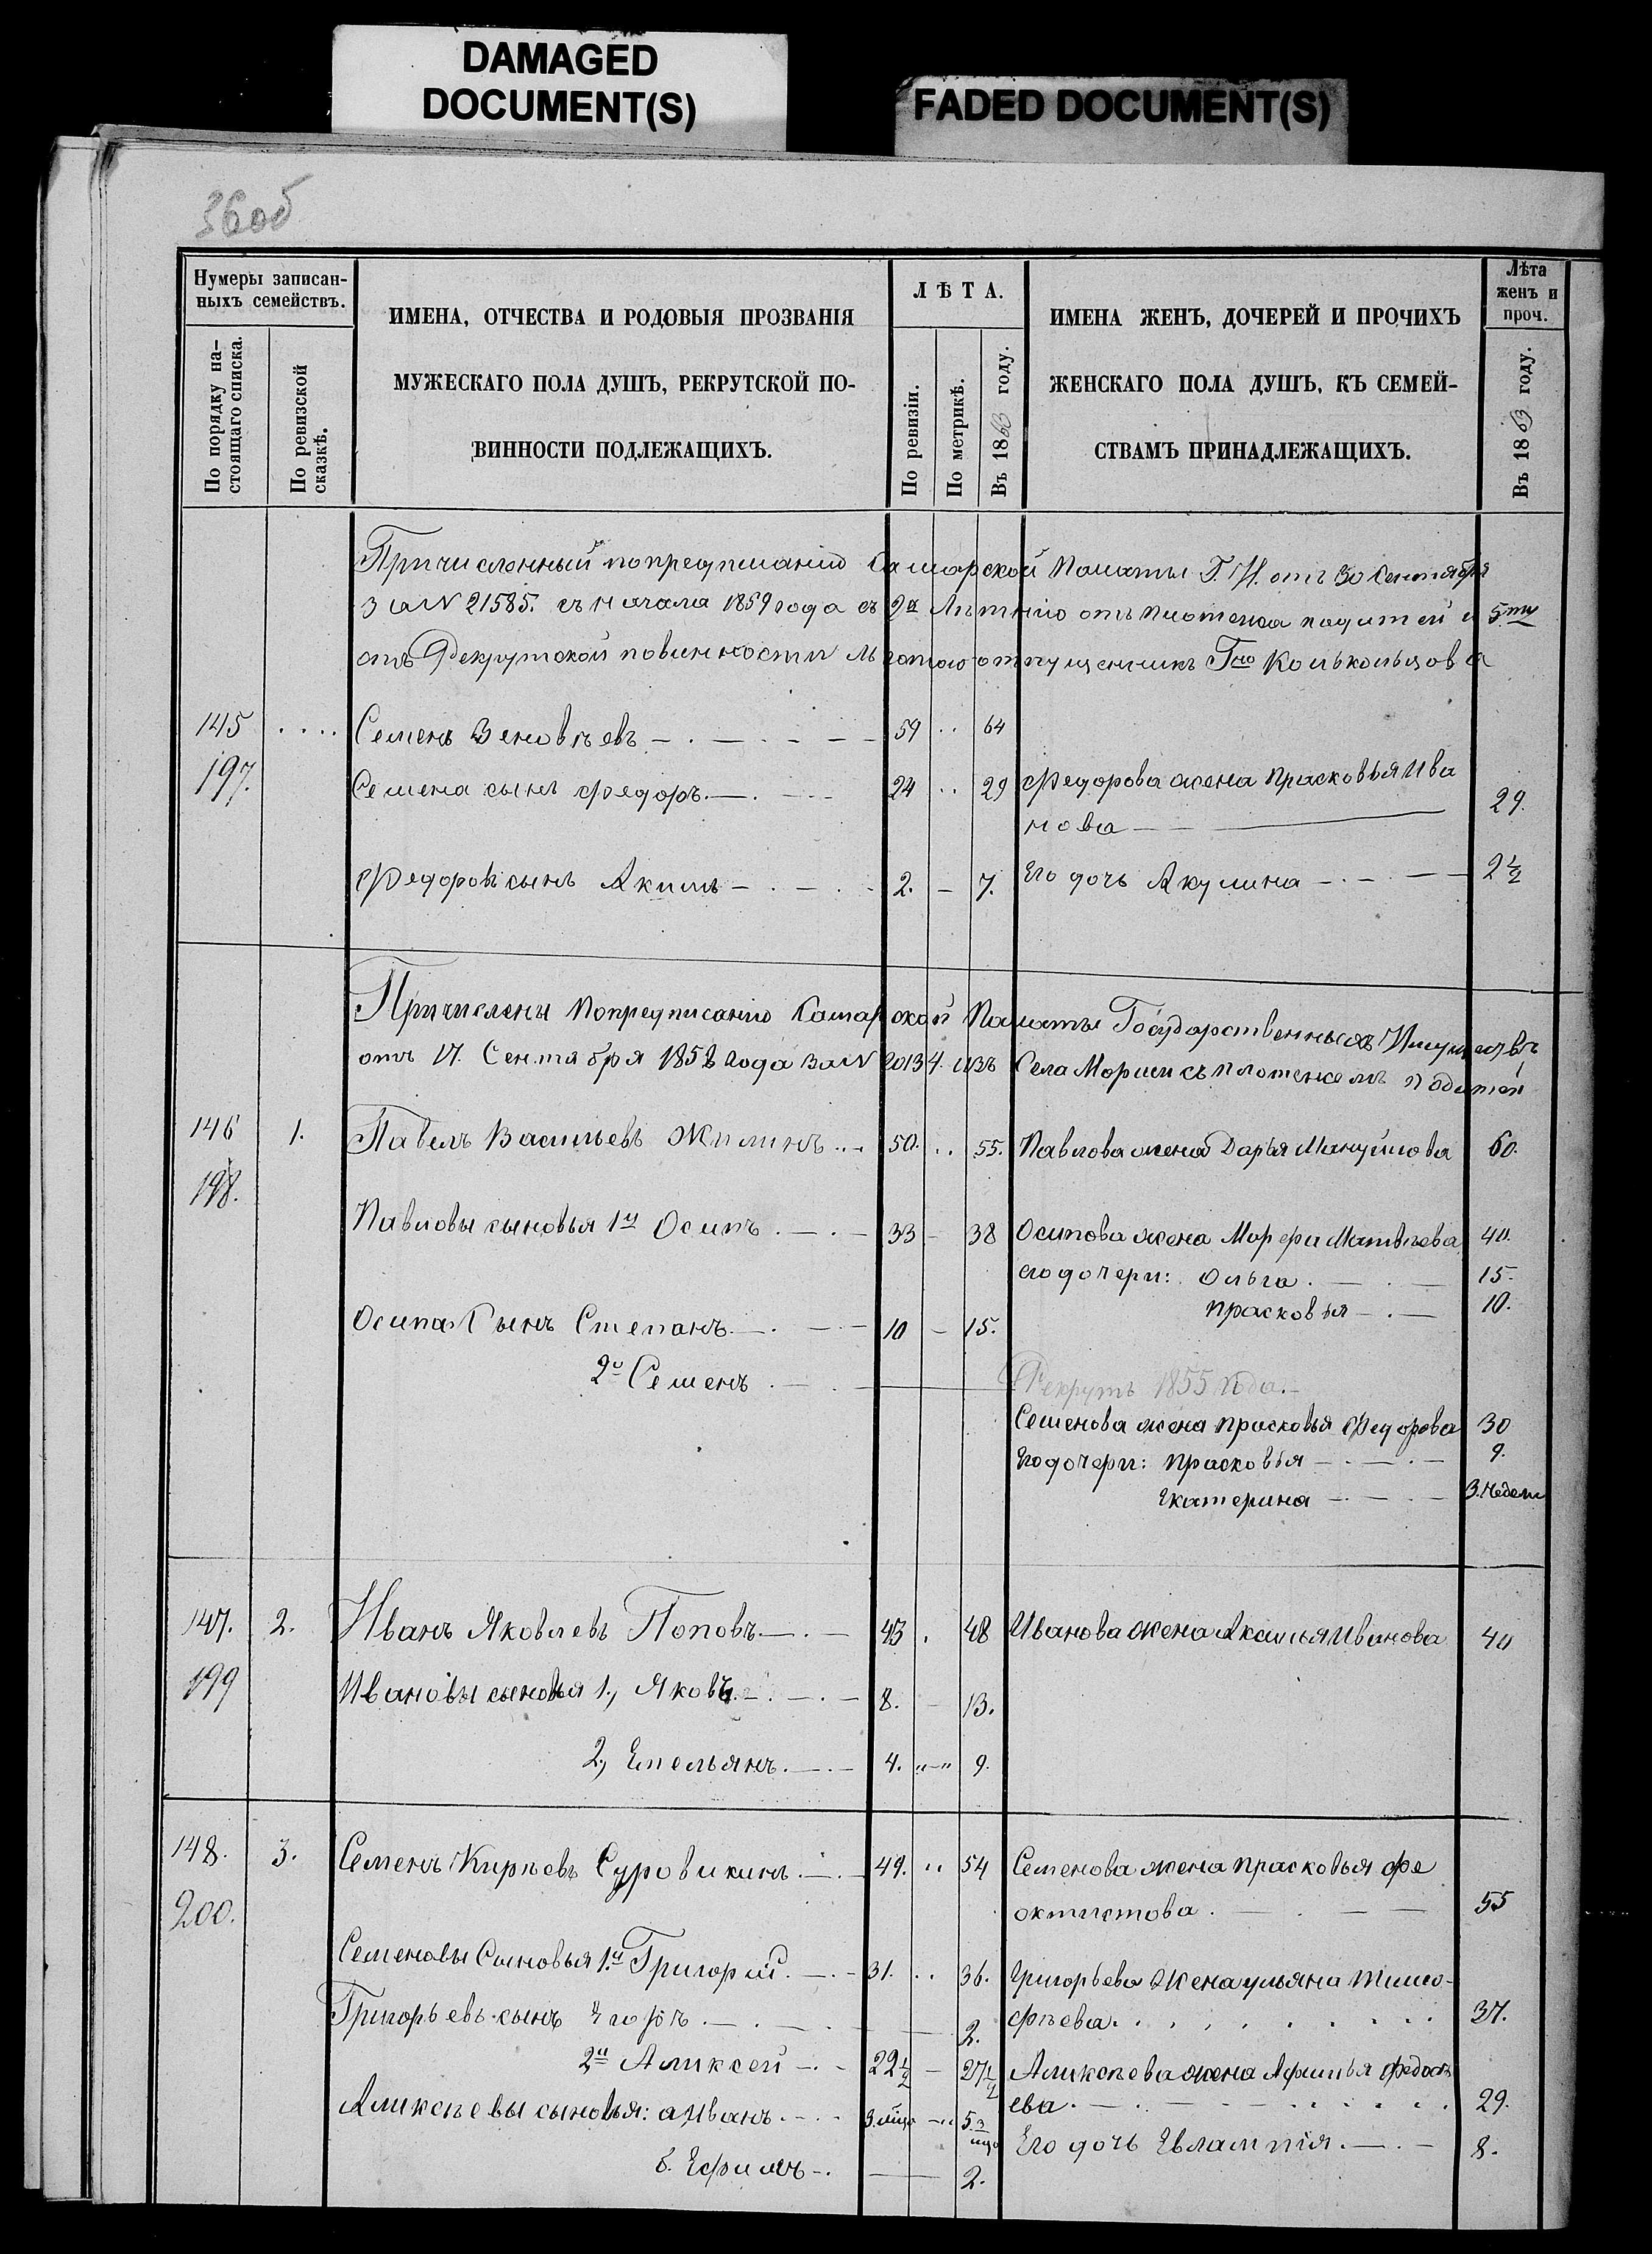 DAMAGED
DOCUMENT(S)
FADED DOCUMENT(S)
36об
Нумеры записан-
ныхъ семействъ.
По порядку на-
стоящаго списка.
По ревизской
сказкѣ.
ИМЕНА, ОТЧЕСТВА И РОДОВЫЯ ПРОЗВАНІЯ
МУЖЕСКАГО ПОЛА ДУШЪ, РЕКРУТСКОЙ ПО-
ВИННОСТИ ПОДЛЕЖАЩИХЪ.
ЛѢТА.
По ревизіи.
По метрикѣ.
Въ 1863 году.
ИМЕНА ЖЕНЪ, ДОЧЕРЕЙ И ПРОЧИХЪ
ЖЕНСКАГО ПОЛА ДУШЪ, КЪ СЕМЕЙ-
СТВАМЪ ПРИНАДЛЕЖАЩИХЪ.
Лѣта
женъ и
проч.
Въ 1863 году.
Причисленный попредписанію Самарской Палаты Г. И. отъ 30 Сентября
за № 21585. съ начала 1859 года съ 9й Лѣтнію отъ платежа податей и 5ти
отъ Рекрутской повинности льготою отпущенникъ Гно Колькольцова
145 . . . . Семенъ Зеновьевъ 59 .. 64
197. Семена сынъ Федоръ 24 .. 29 Федорова жена Прасковья Ива
нова 29.
Федоровъ сынъ Акимъ 2. – 7. Его дочь Акулина 2½
Причислены Попредписанію Самарской Палаты Государственныхъ Имуществъ
отъ 17. Сентября 1858 года за № 20134. изъ Села Морши съ платежемъ податей
146 1. Павелъ Васильевъ Жилинъ 50. .. 55. Павлова жена Дарья Мануйлова 60.
198.
Павловы сыновья 1й Осипъ 33 – 38 Осипова жена Марфа Матвѣева 40.
его дочери: Ольга 15.
Прасковья 10.
Осипа Сынъ Степанъ 10 – 15.
2й Семенъ Рекрутъ 1855 года.
Семенова жена Прасковья Федорова 30
Его дочери: Прасковья 9.
Екатерина 3. недели
147. 2. Иванъ Яковлевъ Поповъ 43 . 48 Иванова жена Аксинья Иванова 40
199 Ивановы сыновья 1., Яковъ 8. – 13.
2, Емельянъ 4. „–„ 9.
148. 3. Семенъ Кирѣевъ Суровикинъ 49. .. 54 Семенова жена Прасковья Фе
200. октистова 55
Семеновы Сыновья 1.й Григорій 31. .. 36. Григорьева Жена Ульяна Тимо-
фѣева 37.
Григорьевъ сынъ Егоръ 2.
2й Алексей 22½ – 27½ Алексѣева жена Афимья Федосѣ
ева 29.
Алексѣевы сыновья: а Иванъ 3. мца 5.
Его дочь Евлампія 8.
б. Ефимъ 2.